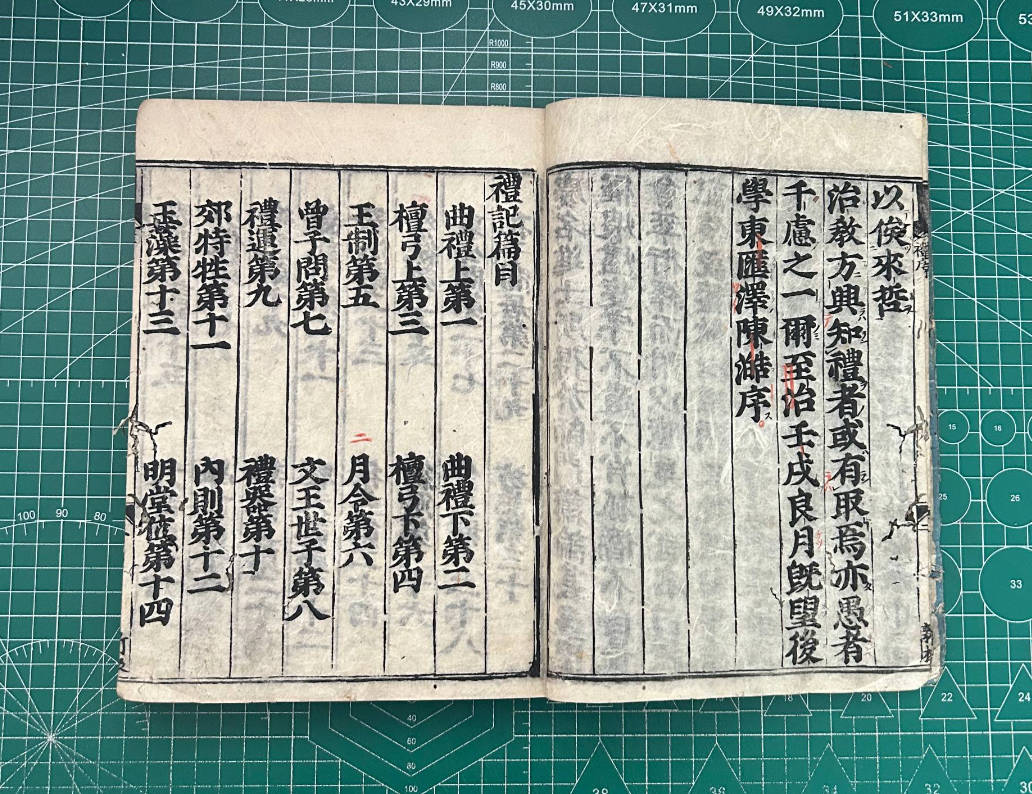 以俟來哲
治教方興知禮者或有取焉亦愚者
千慮之一爾至治壬戌良月旣望後
學東匯澤陳澔序
禮記篇目
曲禮上第一 曲禮下第二
檀弓上第三 檀弓下第四
王制第五 月令第六
曾子問第七 文王世子第八
禮運第九 禮器第十
郊特牲第十一 內則第十二
玉藻第十三 明堂位第十四
43X29mm
45X30mm
47X31mm
49X32mm
51X33mm
R1000
R900
R800
100 90 80
15
16
25
26
33
18 20 22 24
40
60
80
100